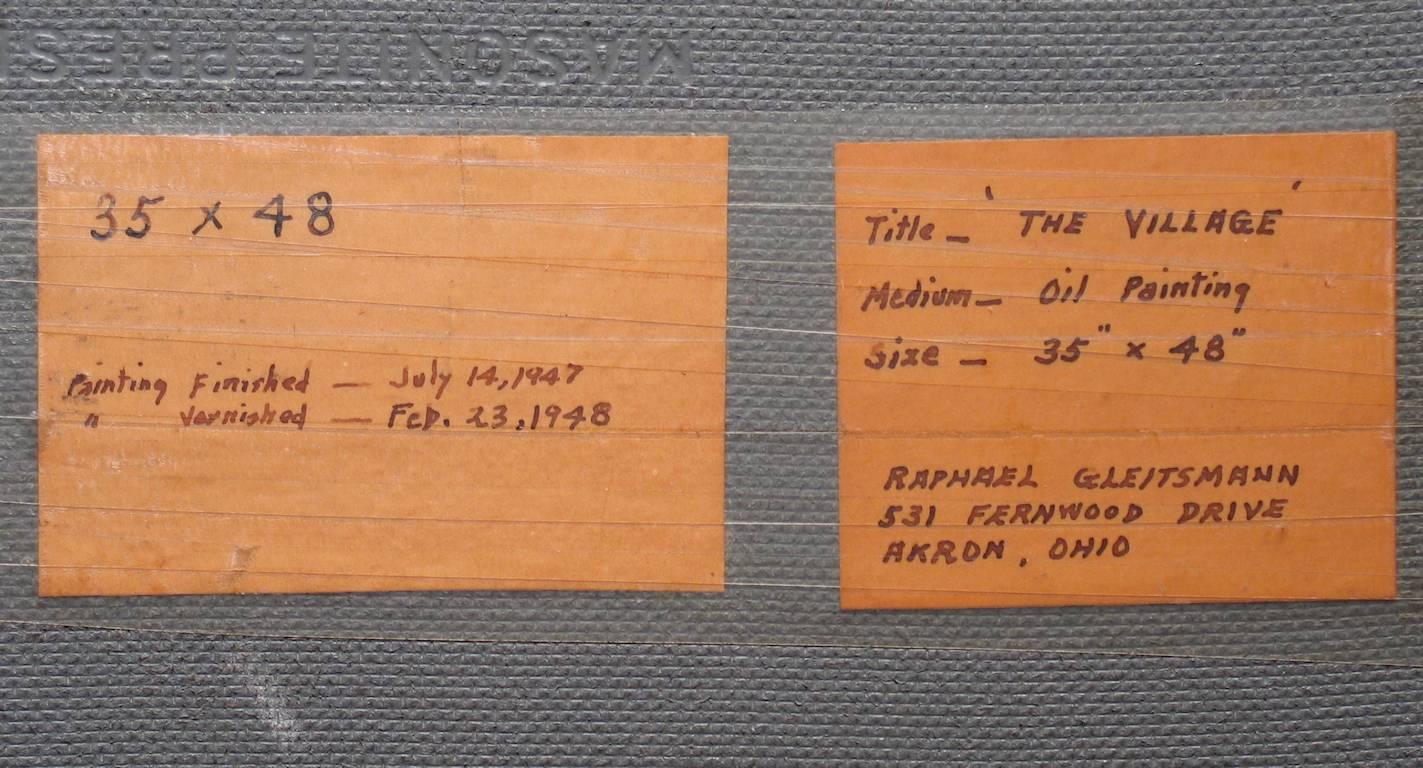 MASONITE PRES
35 x 48
Painting Finished — July 14, 1947
" Varnished — Feb. 23, 1948
Title — 'THE VILLAGE'
Medium — Oil Painting
Size — 35" x 48"
RAPHAEL GLEITSMANN
531 FERNWOOD DRIVE
AKRON, OHIO